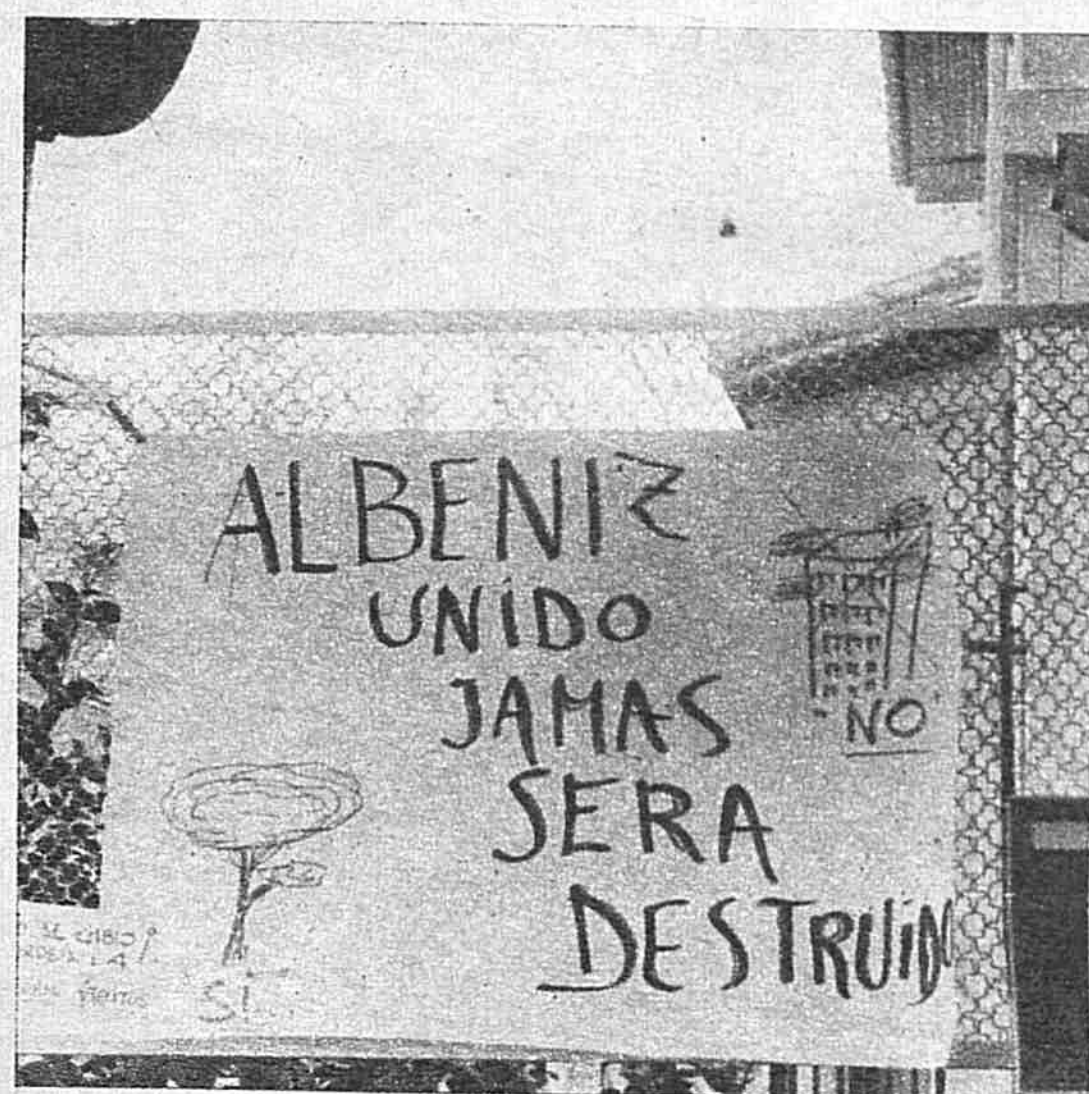 ALBENIZ
UNIDO
JAMAS
SERA
DESTRUIDO
NO
SI